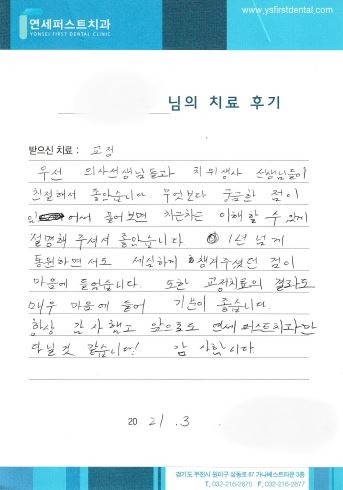 연세퍼스트치과
YONSEI FIRST DENTAL CLINIC
www.ysfirstdental.com
님의 치료 후기
받으신 치료 : 교정
우선 의사선생님들과 치위생사 선생님들이
친절해서 좋았습니다 무엇보다 궁금한 점이
있어서 물어보면 차근차근 이해할 수 있게
설명해 주셔서 좋았습니다 1년 넘게
통원하면서도 세심하게 챙겨주셨던 점이
마음에 들었습니다. 또한 교정치료의 결과도
매우 마음에 들어 기분이 좋습니다.
항상 감사했고 앞으로도 연세퍼스트치과만
다닐 것 같습니다! 감사합니다.
20 21. 3
경기도 부천시 원미구 상동로 87 가나베스트타운 3층
T. 032-216-2875 F. 032-216-2877